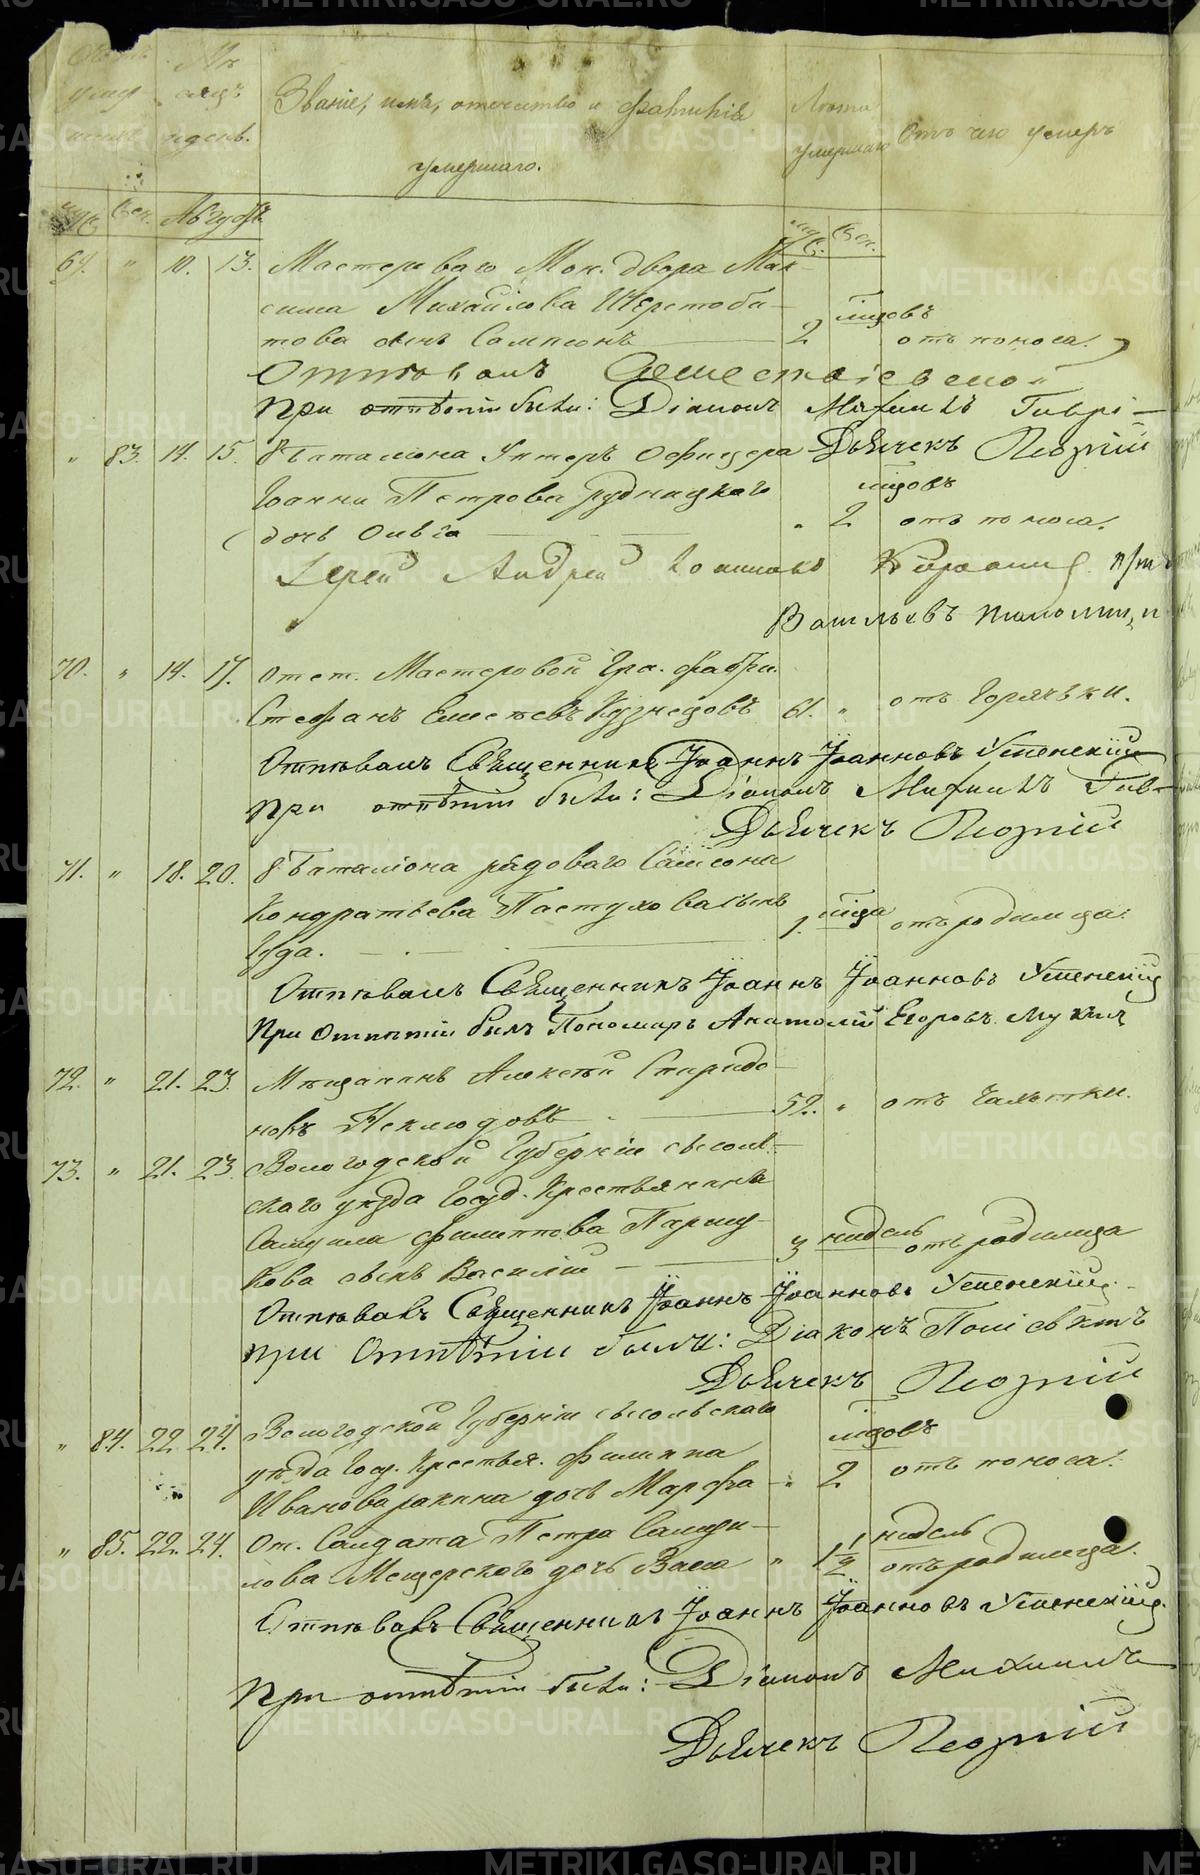 Званіе, имя, отечество и фамилія
умершаго.
Лѣта
умершаго
Отъ чего умеръ
Муж. Жен. Августъ.
69. " 10. 13. Мастероваго Мон. двора Мак-
сима Михайлова Шерстоби-
това сынъ Сампсонъ 2 годовъ отъ поноса.
Отпѣвалъ
При отпѣтіи были: Діаконъ Михаилъ Гаврі-
Дьячекъ Георгій
" 83. 14. 15. 8 Баталіона Унтеръ Офицера
Іоанна Петрова Рудницкаго годовъ
дочь Ольга " 2 отъ поноса.
Іерей Андрей Іоанновъ при
Васильевъ
70. " 14. 17. Отст. Мастеровой Гра. фабри.
Стефанъ Емеліевъ Кузнецовъ 61. " отъ горячки.
Отпѣвалъ Священникъ Іоаннъ Іоанновъ Успенскій
При отпѣтіи были: Діаконъ Михаилъ Гав-
Дьячекъ Георгій
71. " 18. 20. 8 Баталіона рядоваго Самсона
Кондратьева Пастухова сынъ
Іуда. 1. года отъ родимца.
Отпѣвалъ Священникъ Іоаннъ Іоанновъ Успенскій
При Отпѣтіи былъ Пономарь Анатолій Егоровъ
72. " 21. 23. Мѣщанинъ Алексѣй Спиридо-
новъ Неклюдовъ 52. " отъ чахотки.
73. " 21. 23. Вологодской Губерніи сысоль-
скаго уѣзда Госуд. Крестьянина
Самуила Филиппова Паршу-
кова сынъ Василій 3 недѣль отъ родимца
Отпѣвалъ Священникъ Іоаннъ Іоанновъ Успенскій
при Отпѣтіи были: Діаконъ Поліевктъ
Дьячекъ Георгій
" 84. 22. 24. Вологодской Губерніи сысольскаго
уѣзда Госу. Крестья. Филиппа годовъ
Иванова дочь Марфа " 2 отъ поноса.
" 85. 22. 24. От. Салдата Петра Самуи- недѣль
лова Мещерскаго дочь " 1 1/2 отъ родимца.
Отпѣвалъ Священникъ Іоаннъ Іоанновъ Успенскій
При отпѣтіи были: Діаконъ Михаилъ
Дьячекъ Георгій
METRIKI.GASO-URAL.RU